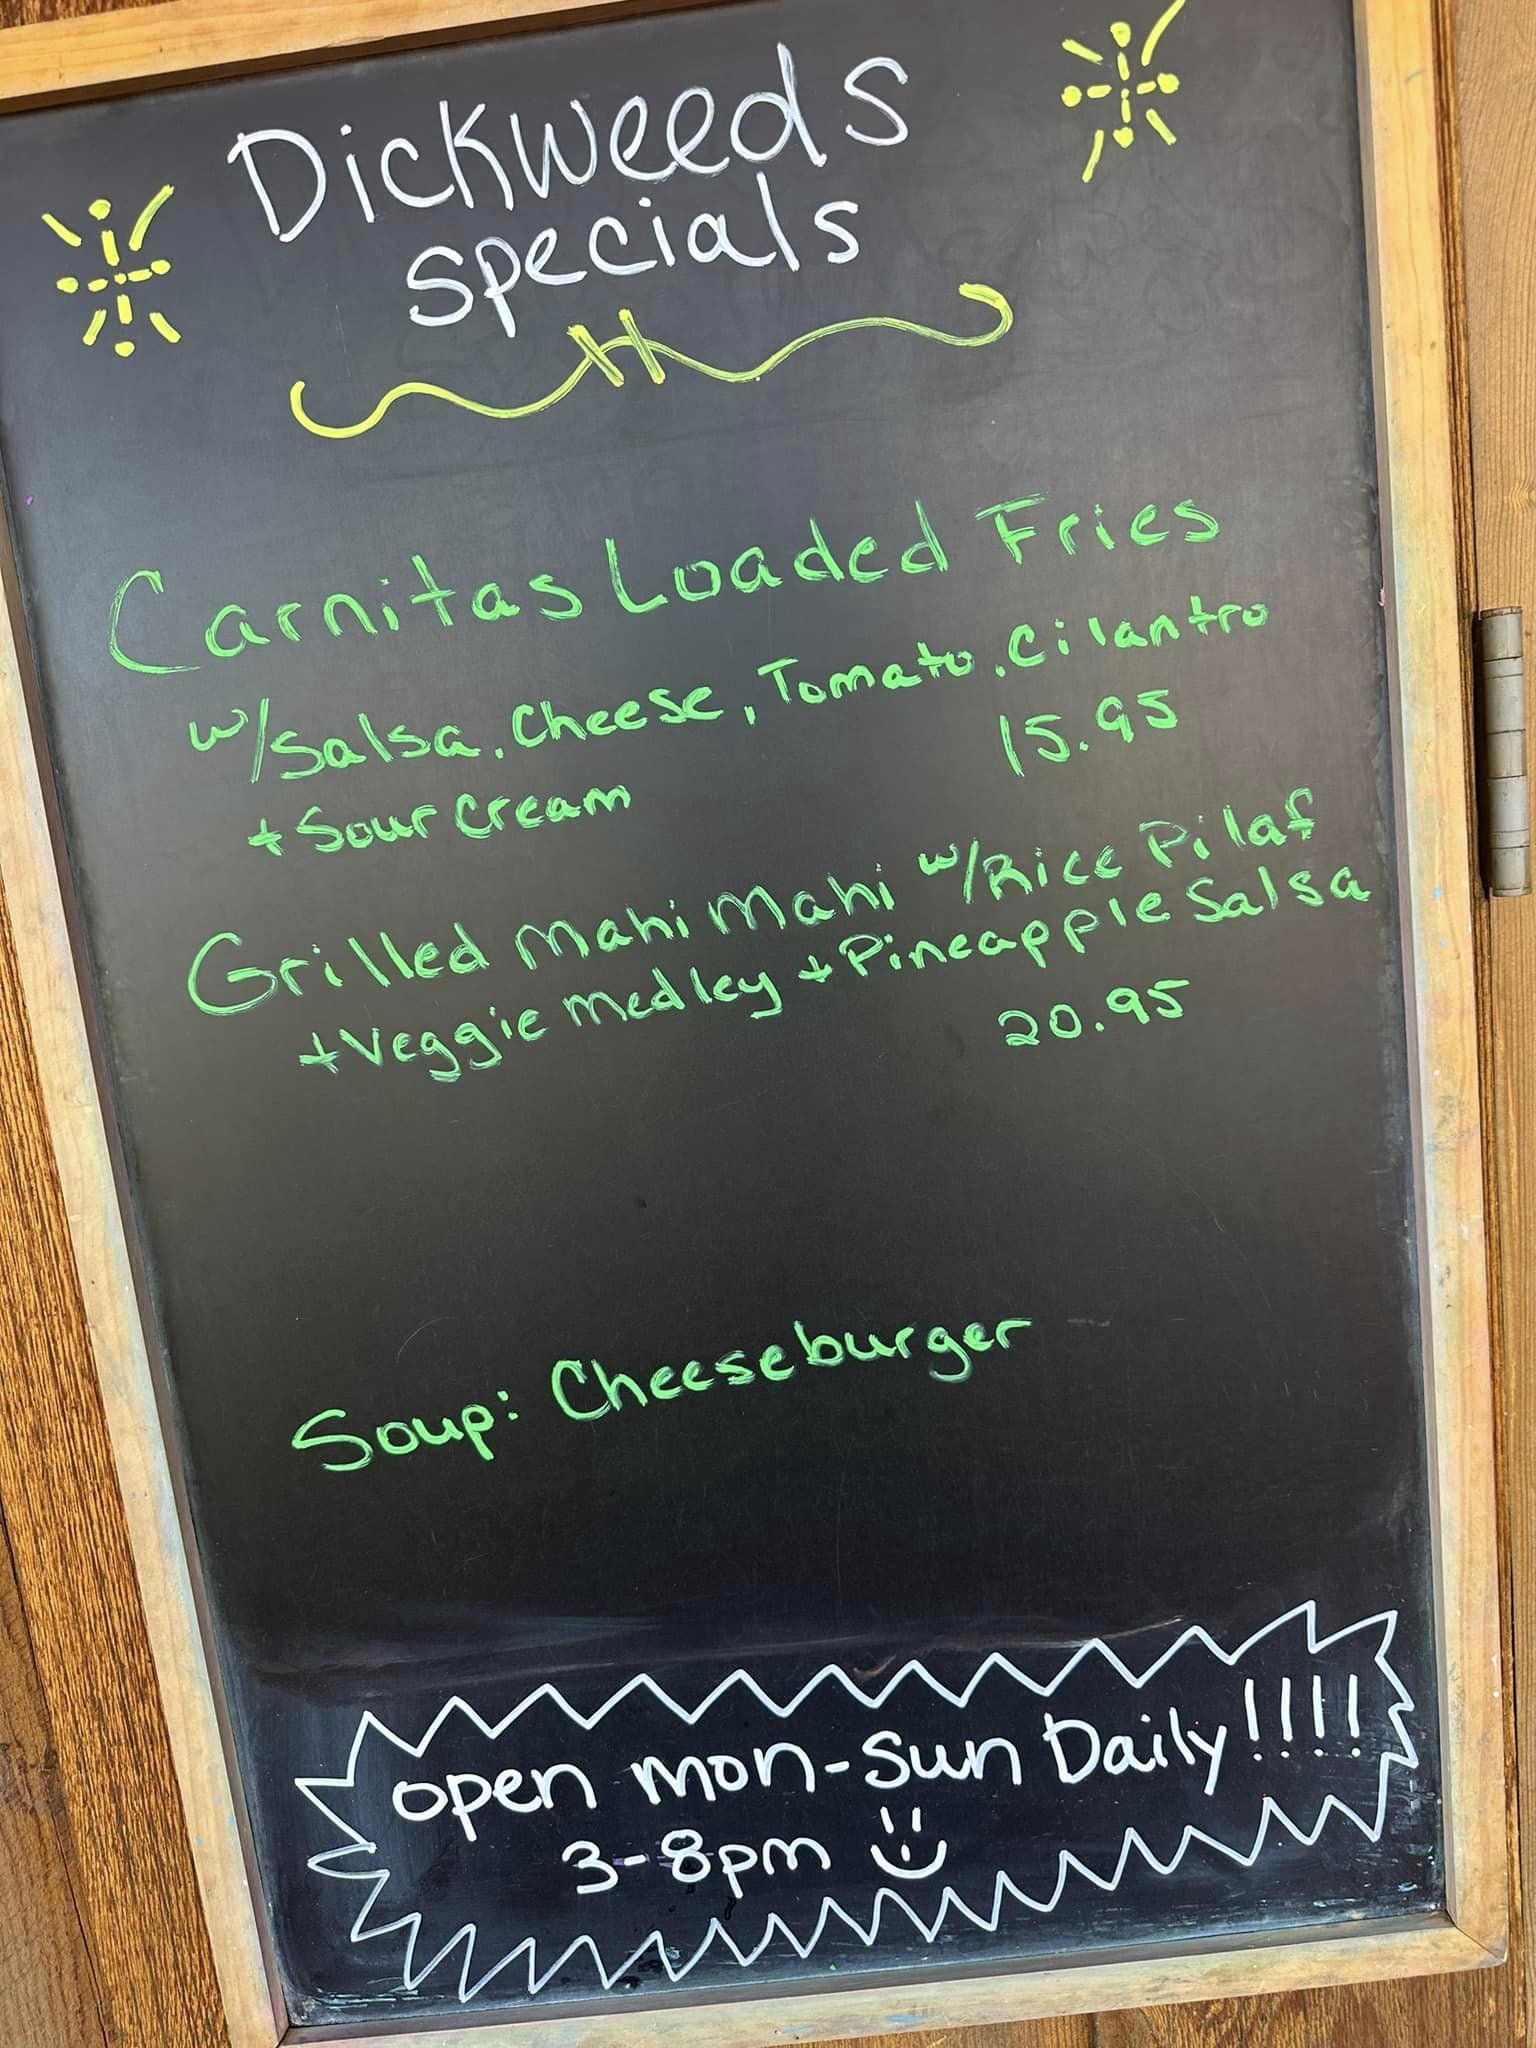 Dickweeds
specials
Carnitas Loaded Fries
w/Salsa, Cheese, Tomato, Cilantro
+ Sour Cream 15.95
Grilled Mahi Mahi w/Rice Pilaf
+ Veggie Medley + Pineapple Salsa
20.95
Soup: Cheeseburger
open mon-Sun Daily!!!!
3-8pm